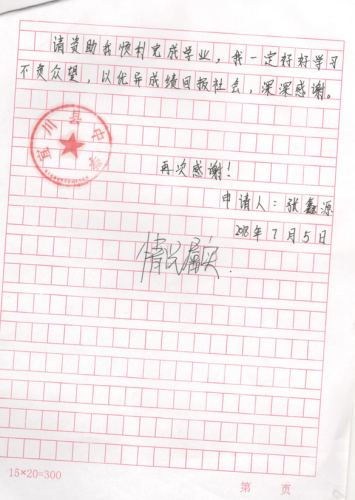 请资助我顺利完成学业，我一定好好学习
不负众望，以优异成绩回报社会，深深感谢。
宜川县中学
再次感谢！
申请人：张鑫源
2018年7月5日
情况属实
15×20=300
第 页